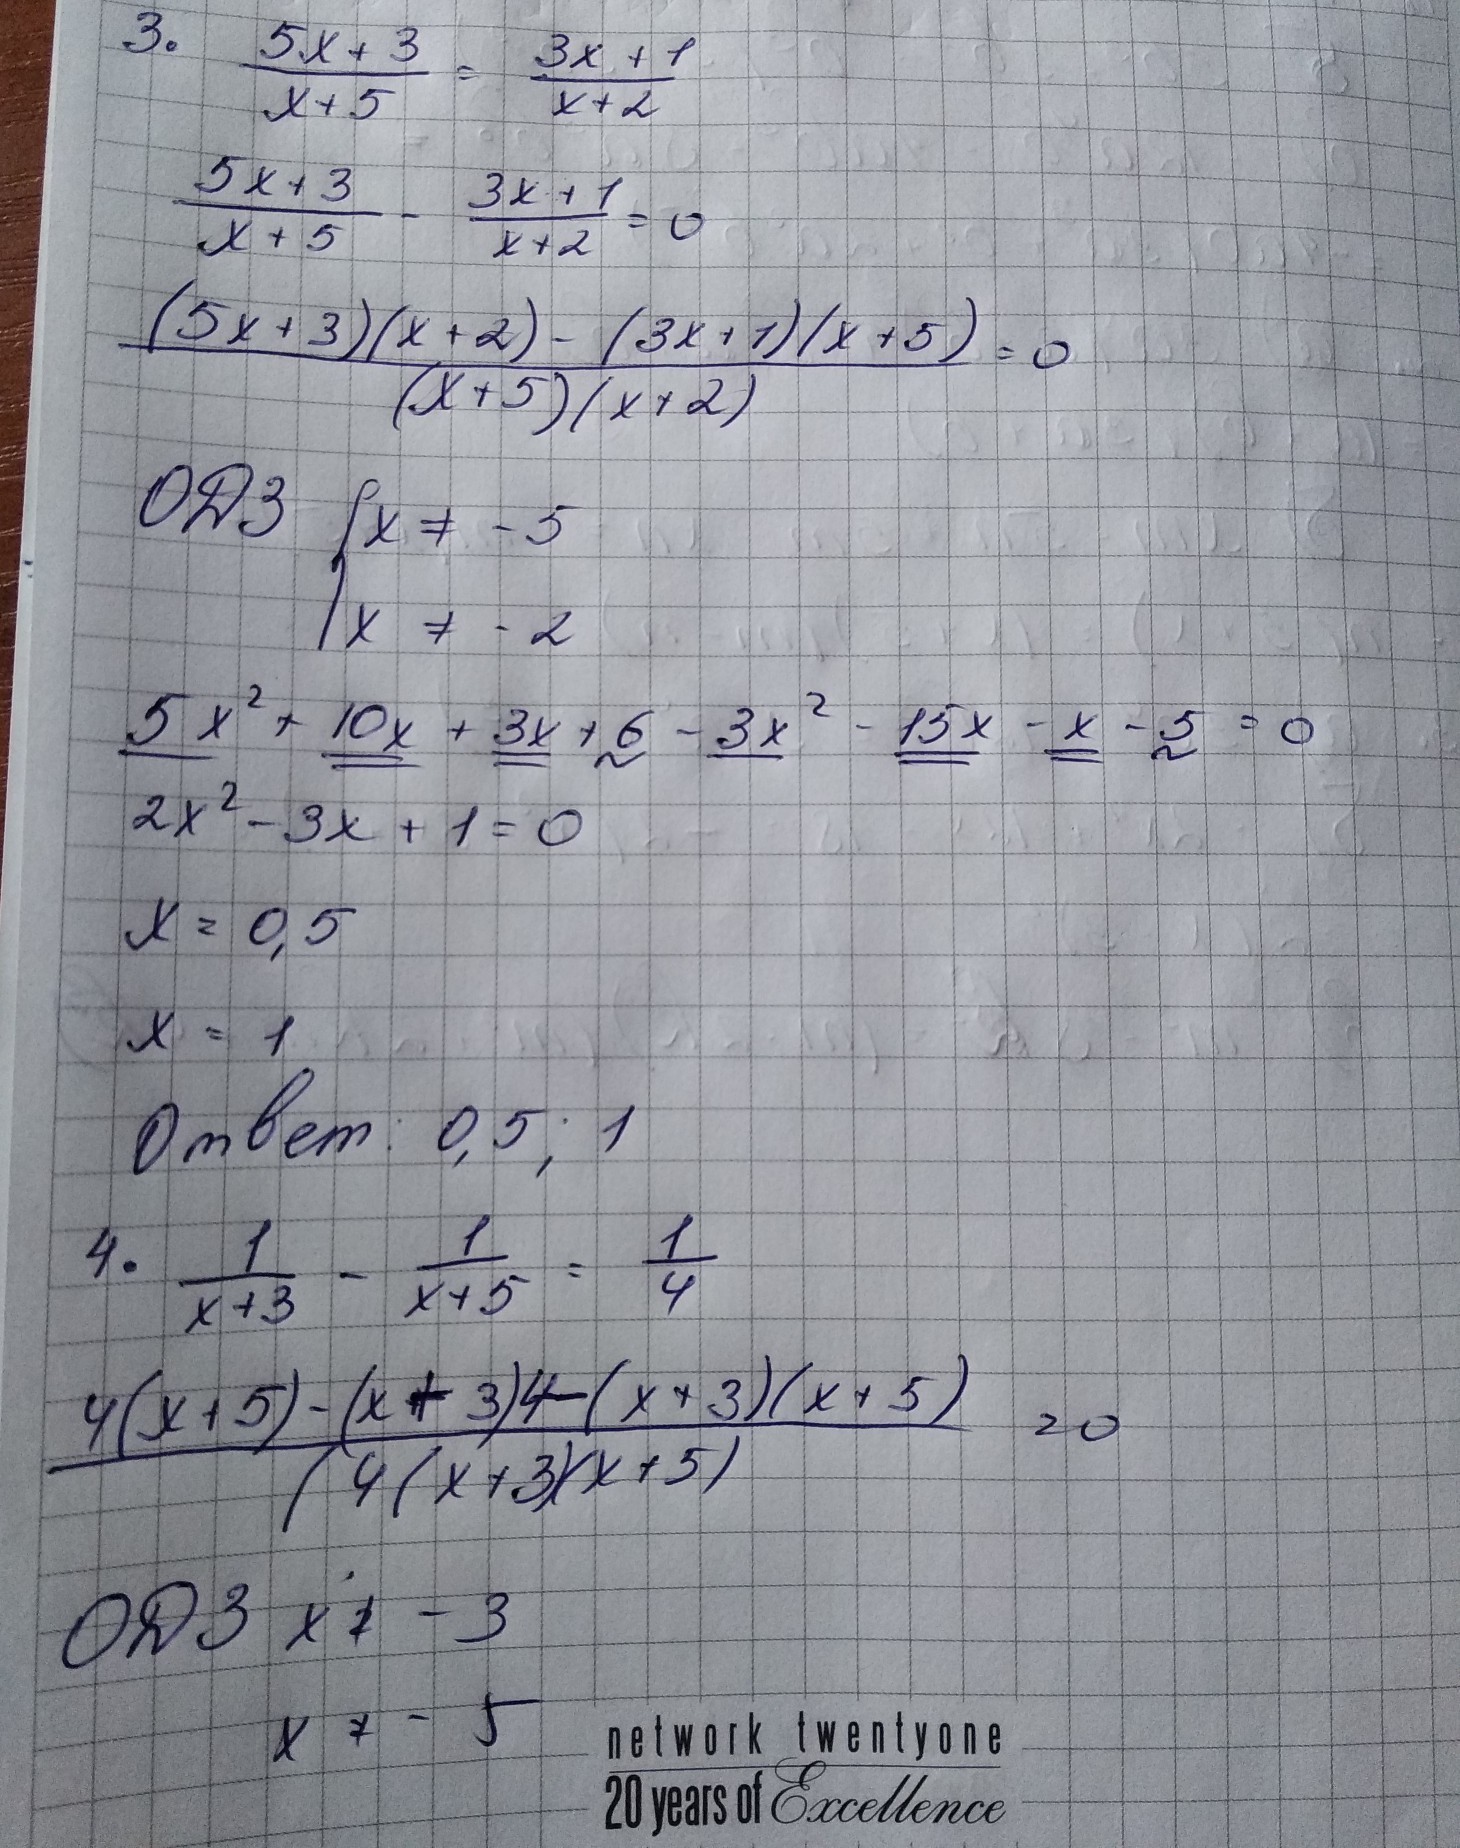 3. (5x+3)/(x+5) = (3x+1)/(x+2)
(5x+3)/(x+5) - (3x+1)/(x+2) = 0
((5x+3)(x+2) - (3x+1)(x+5))/((x+5)(x+2)) = 0
ОДЗ { x ≠ -5
x ≠ -2
5x² + 10x + 3x + 6 - 3x² - 15x - x - 5 = 0
2x² - 3x + 1 = 0
x = 0,5
x = 1
Ответ: 0,5; 1
4. 1/(x+3) - 1/(x+5) = 1/4
(4(x+5) - (x+3)4 - (x+3)(x+5))/((4(x+3)(x+5)) = 0
ОДЗ x ≠ -3
x ≠ -5
network twentyone
20 years of Excellence